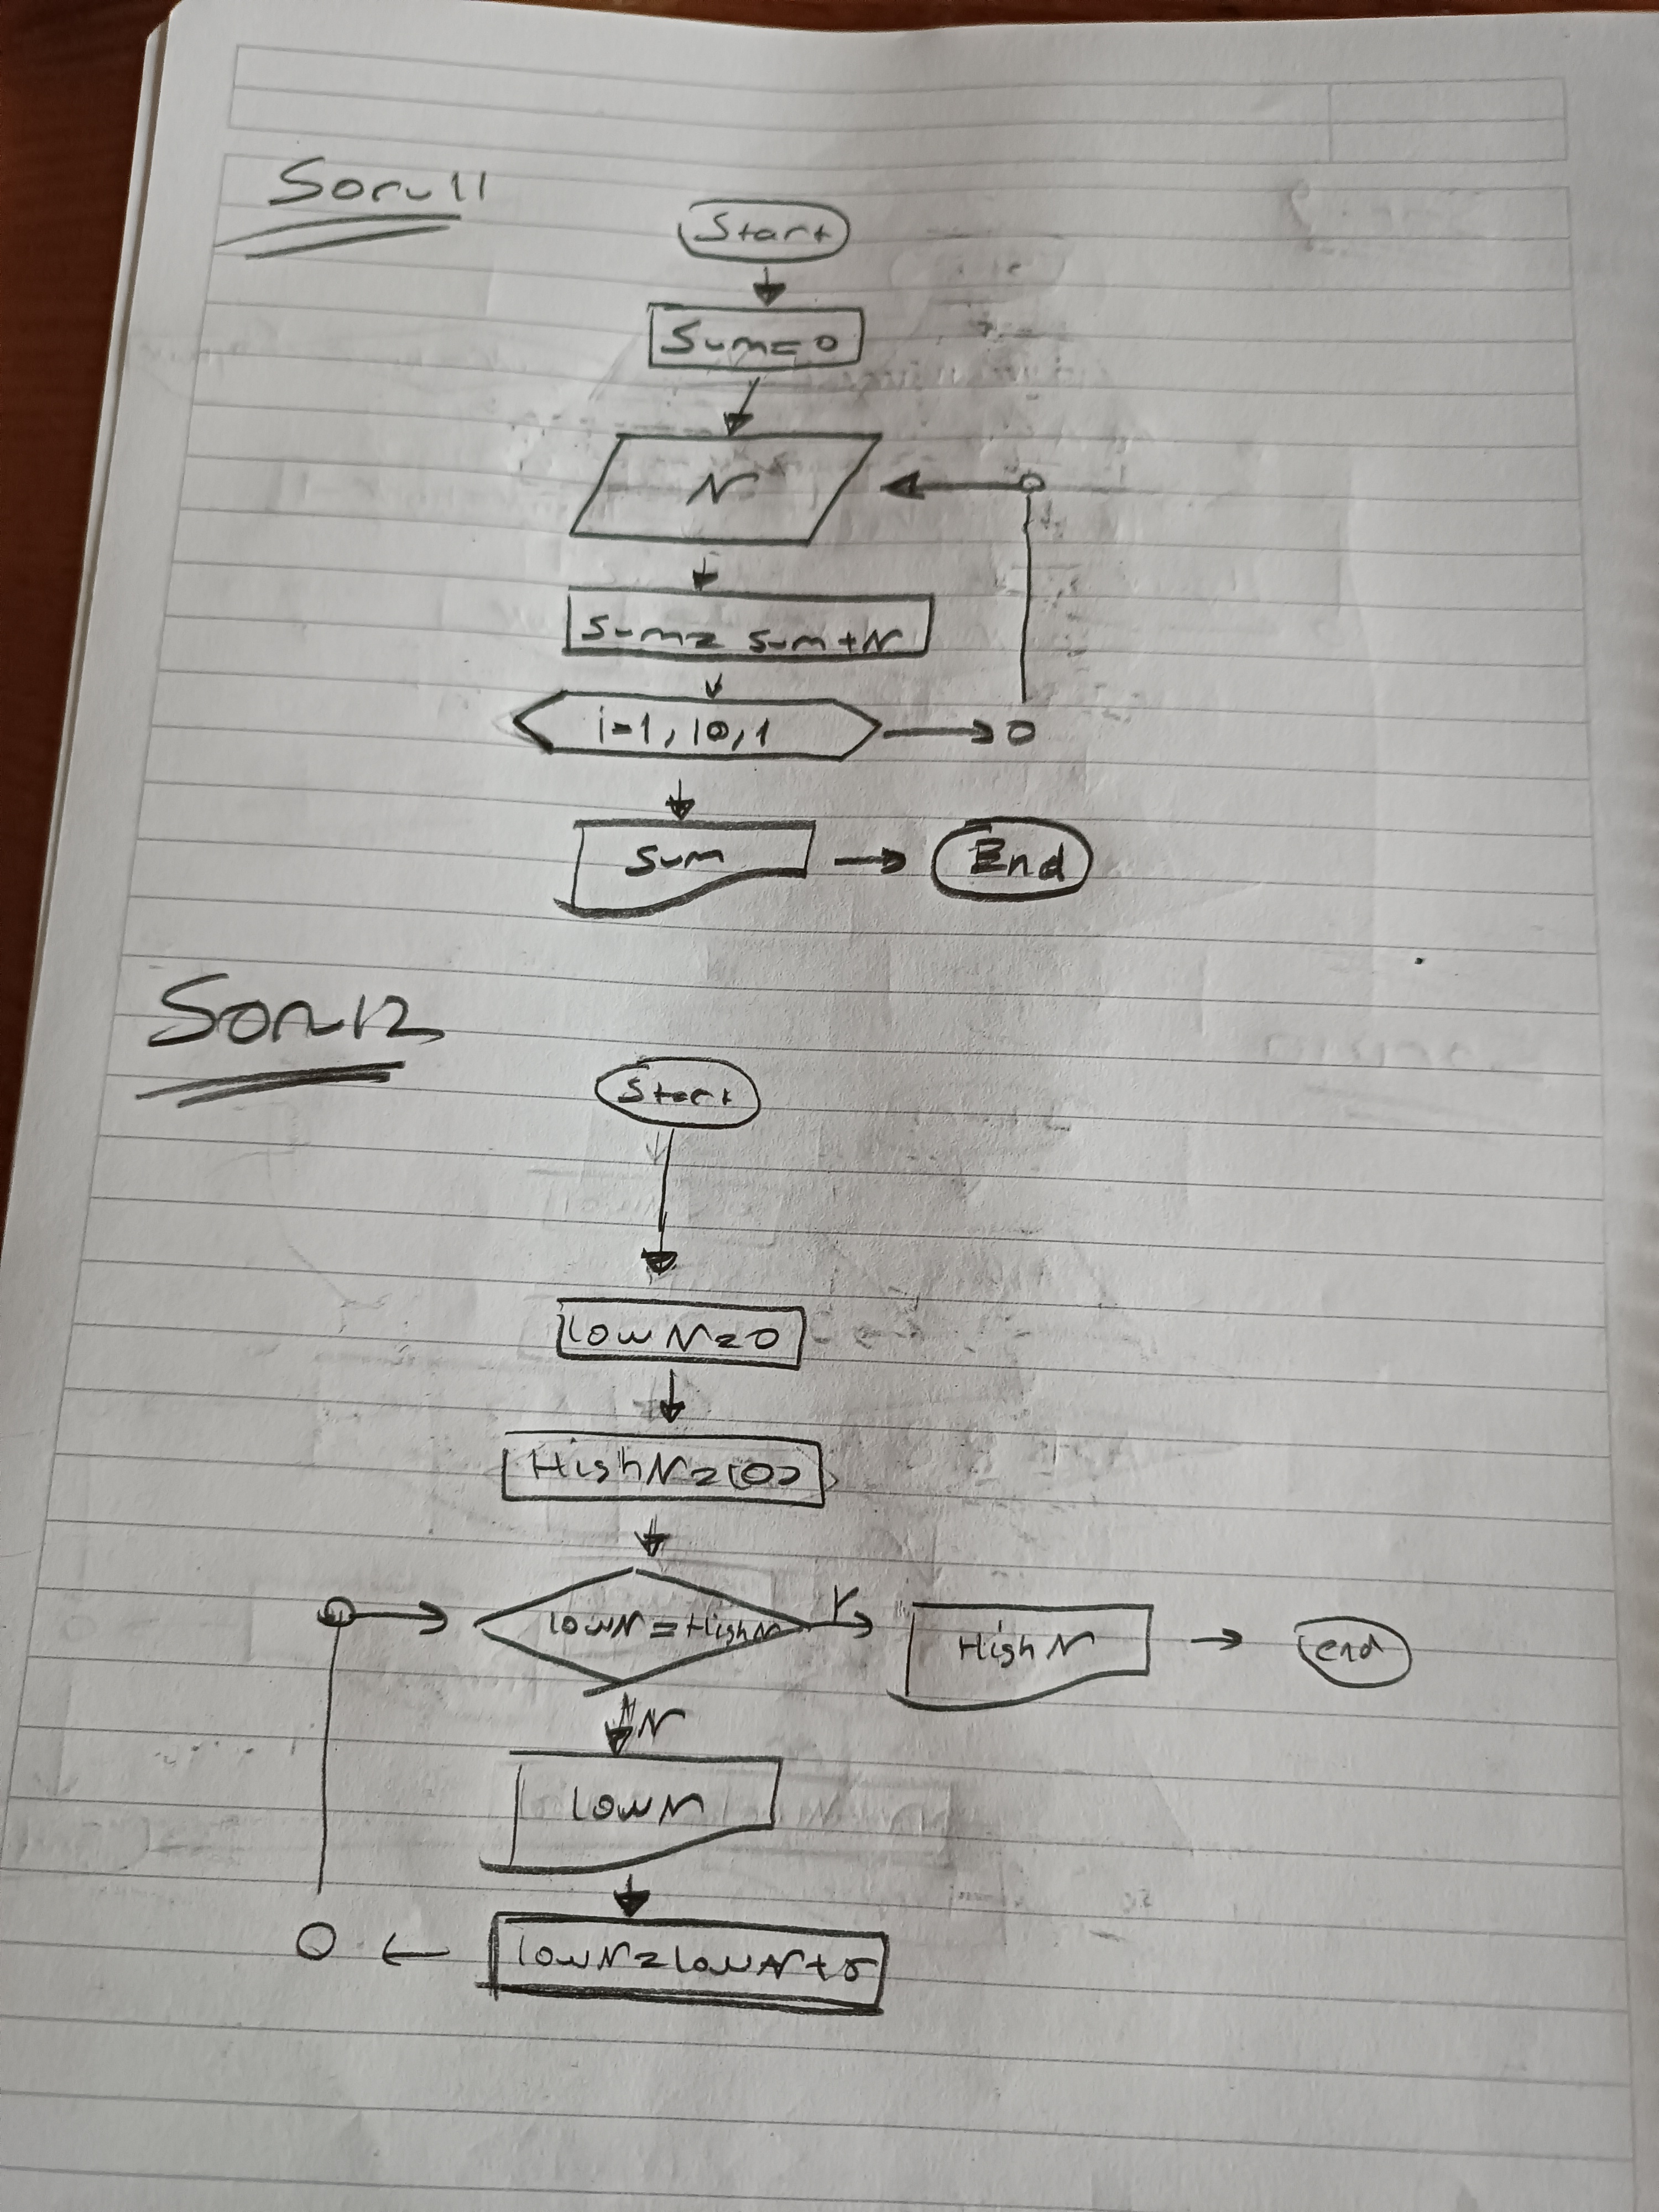 Soru 11
Start
Sum=0
N
Sum= sum+N
i=1, 10, 1
Sum
End
Soru 12
Start
lowN=0
lowN=HighN
Y
HighN
end
N
lowN
lowN=lowN+5